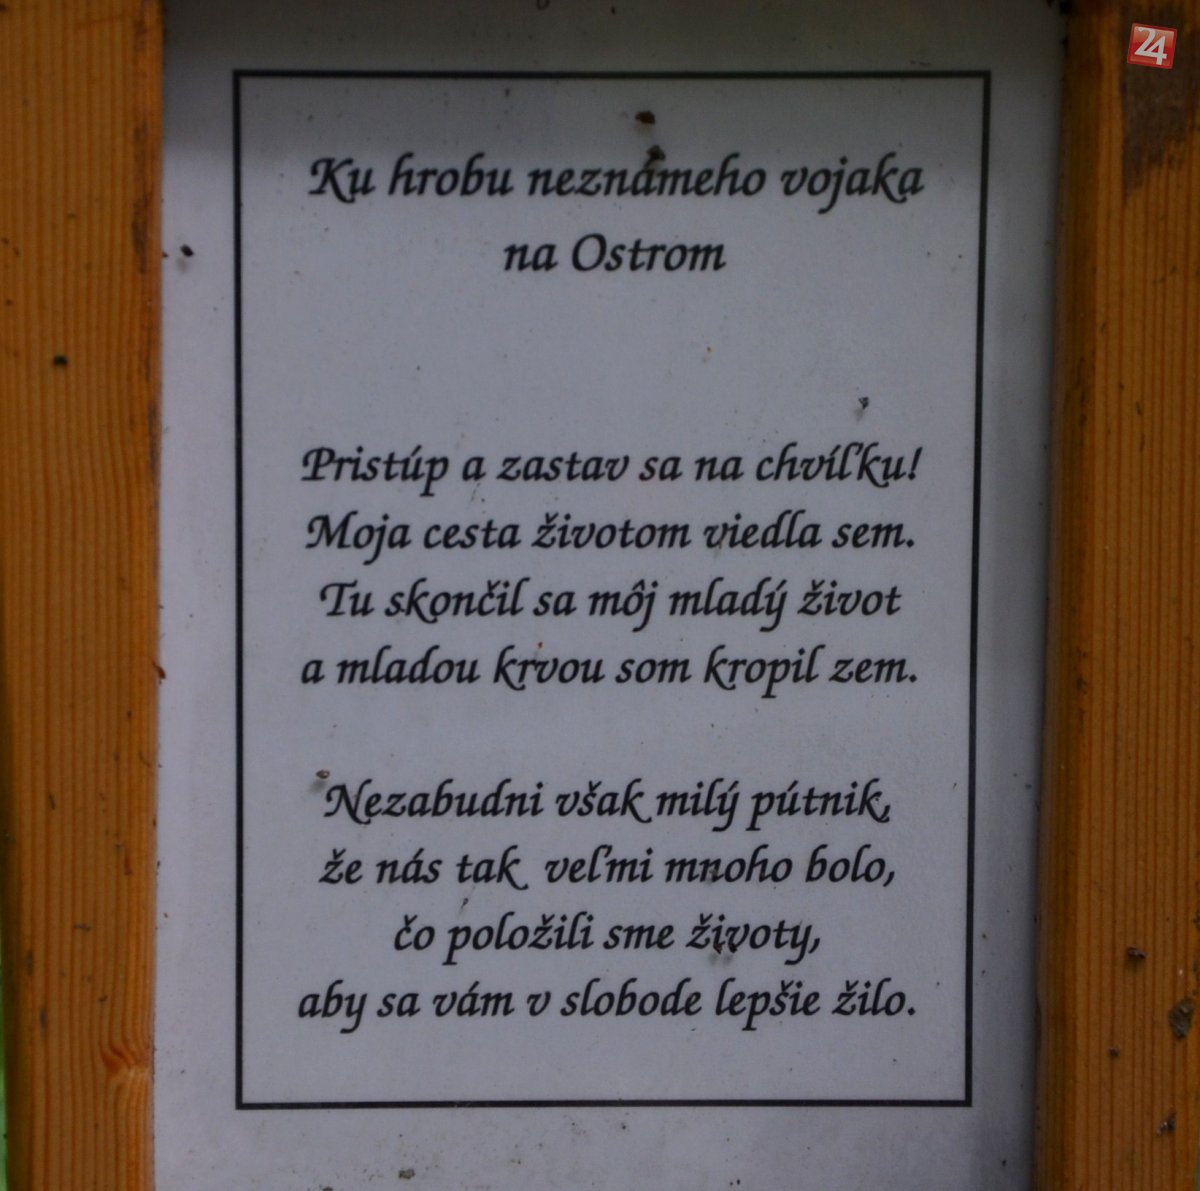 24
Ku hrobu neznámeho vojaka
na Ostrom
Pristúp a zastav sa na chvíľku!
Moja cesta životom viedla sem.
Tu skončil sa môj mladý život
a mladou krvou som kropil zem.
Nezabudni však milý pútnik,
že nás tak veľmi mnoho bolo,
čo položili sme životy,
aby sa vám v slobode lepšie žilo.